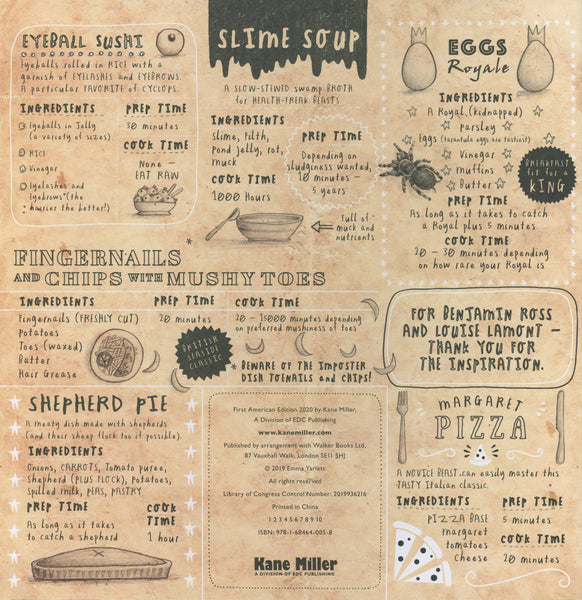 EYEBALL SUSHI
Eyeballs rolled in RICE with a
garnish of EYELASHES and EYEBROWS.
A particular FAVORITE of CYCLOPS.
INGREDIENTS
Eyeballs in Jelly
(a variety of sizes)
RICE
Vinegar
Eyelashes and
eyebrows*(the
hairier the better!)
PREP TIME
30 minutes
COOK TIME
None –
EAT RAW
SLIME SOUP
A SLOW-STEWED swamp BROTH
for HEALTH-FREAK BEASTS.
INGREDIENTS
Slime, filth,
Pond jelly, rot,
muck
COOK TIME
1000 Hours
PREP TIME
Depending on
sludginess wanted,
10 minutes –
5 years
full of
muck and
nutrients
EGGS
Royale
INGREDIENTS
A Royal (kidnapped)
Parsley
Eggs (tarantula eggs are tastiest)
Vinegar
Muffins
Butter
BREAKFAST
fit for a
KING
PREP TIME
As long as it takes to catch
a Royal plus 5 minutes
COOK TIME
20 – 30 minutes depending
on how rare your Royal is
FINGERNAILS*
AND CHIPS WITH MUSHY TOES
INGREDIENTS
Fingernails (FRESHLY CUT)
Potatoes
Toes (waxed)
Butter
Hair Grease
PREP TIME
20 minutes
BRITISH
SEASIDE
CLASSIC
COOK TIME
20 – 15000 minutes depending
on preferred mushiness of toes
* BEWARE OF THE IMPOSTER
DISH TOENAILS and CHIPS!
FOR BENJAMIN ROSS
AND LOUISE LAMONT –
THANK YOU FOR
THE INSPIRATION.
SHEPHERD PIE
A meaty dish made with shepherds
(and their sheep flock too if possible).
INGREDIENTS
Onions, CARROTS, Tomato puree,
Shepherd (PLUS FLOCK), Potatoes,
Spilled milk, PEAS, PASTRY
PREP TIME
As long as it takes
to catch a shepherd
COOK
TIME
1 hour
First American Edition 2020 by Kane Miller,
A Division of EDC Publishing
www.kanemiller.com
Published by arrangement with Walker Books Ltd,
87 Vauxhall Walk, London SE11 5HJ
© 2019 Emma Yarlett
All rights reserved
Library of Congress Control Number: 2019936216
Printed in China
1 2 3 4 5 6 7 8 9 10
ISBN: 978-1-68464-005-8
Kane Miller
A DIVISION OF EDC PUBLISHING
MARGARET
PIZZA
A NOVICE BEAST can easily master this
TASTY Italian classic.
INGREDIENTS
PIZZA BASE
margaret
tomatoes
Cheese
PREP TIME
5 minutes
COOK TIME
20 minutes